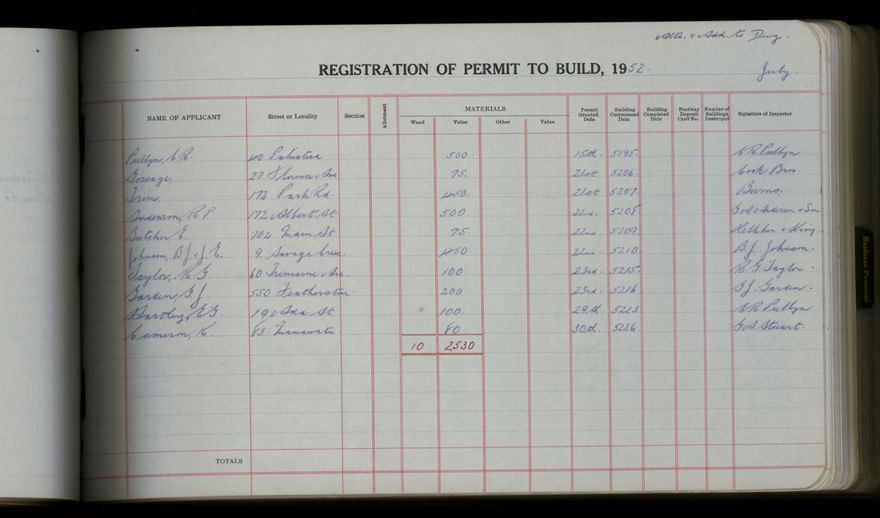 Alts. & Add. to Dwg.
REGISTRATION OF PERMIT TO BUILD, 1952.
July.
NAME OF APPLICANT Street or Locality Section Allotment MATERIALS Permit Granted Date Building Commenced Date Building Completed Date Footway Deposit Card No. Number of Buildings Destroyed Signature of Inspector
Wood Value Other Value
40 500 15th. 5195.
Gossage, 27 Florence Ave 75. 21st 5206. Cook Bros.
173 Park Rd. 450. 21st 5207. Burns.
Anderson, R.P. 172 Albert St 500 22nd. 5208. Anderson & Son
Butcher E. 702 Main St 75 22nd. 5209. Kelliher & King.
Johnson, B.J. & J.E. 9. Savage Cres. 450 22nd. 5210. B.J. Johnson.
Taylor, R.G. 60 Tremaine Ave. 100. 23rd. 5215. R.G. Taylor.
Garden, G.J. 550 Featherston 200 23rd. 5216 G.J. Garden.
Hartley, E.G. 19 Ada St 100 29th. 5223.
Cameron, K. 83 80 30th. 5226 Stewart.
10 2530
TOTALS
Business Premises